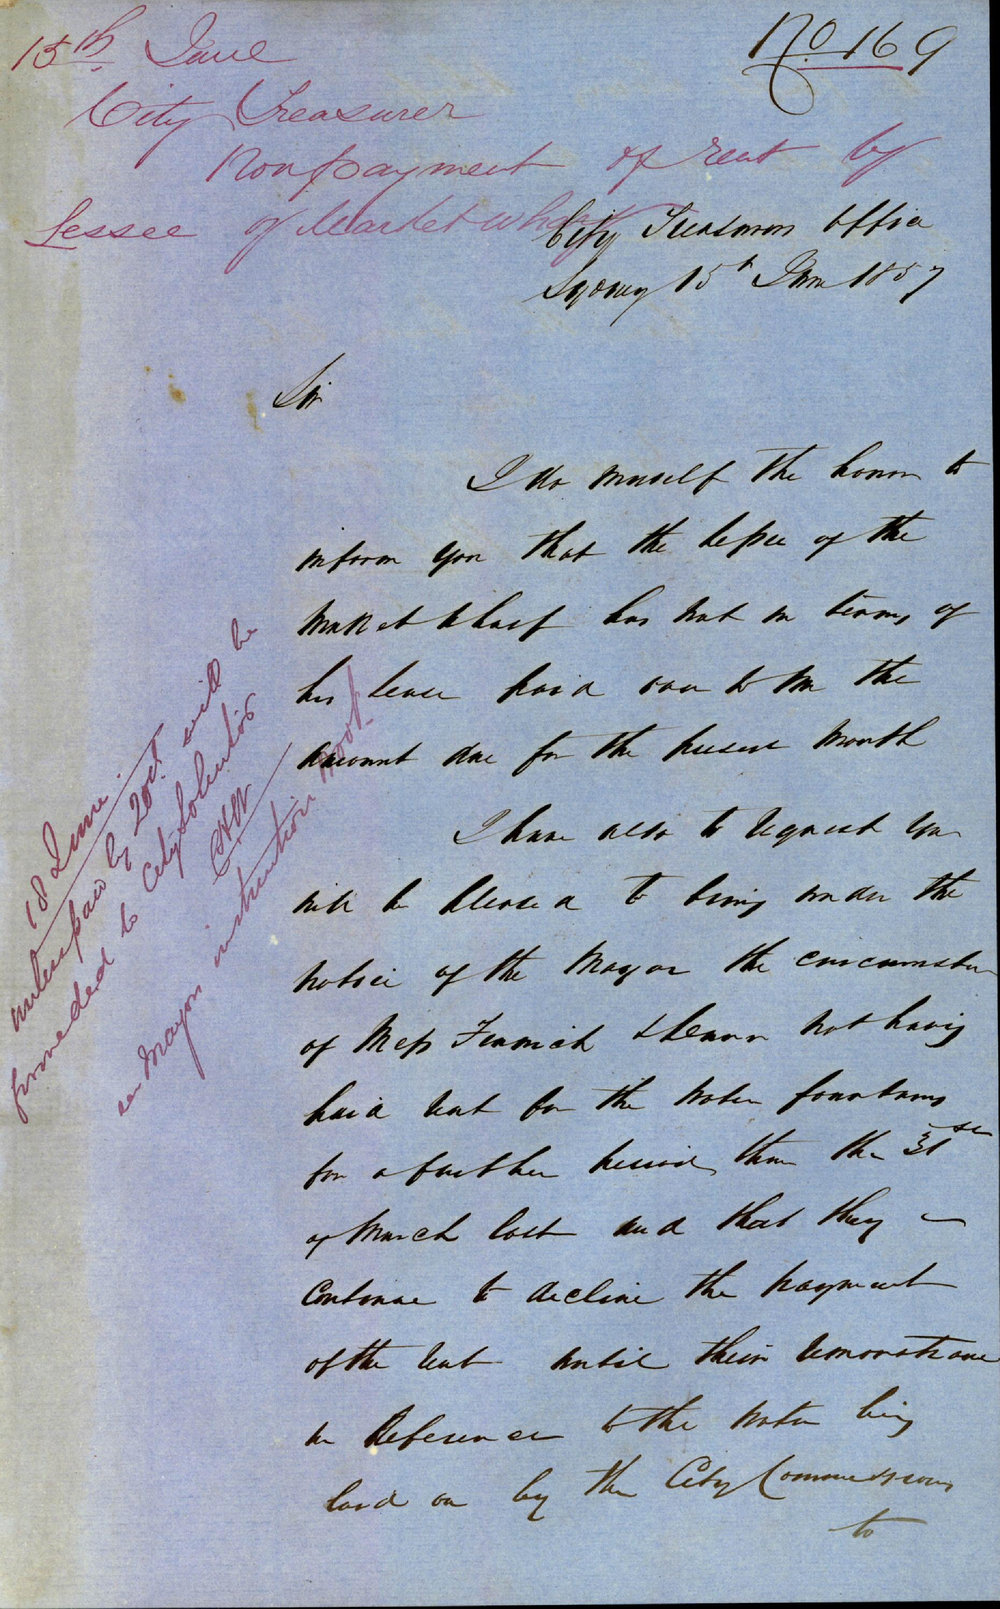 No 169
15th June
City Treasurer
Nonpayment of rent by
Lessee of Market Wharf
City Treasurers Office
Sydney 15th June 1857
Sir
I do myself the honor to
inform you that the Lessee of the
Market Wharf has not in terms of
his lease paid over to me the
amount due for the present Month
I have also to request you
will be pleased to bring under the
notice of the Mayor the circumstance
of Mess Fenwick & not having
paid rent for the Water fountains
for a further period than the 31st
of March last and that they
Continue to decline the payment
of the rent until their remonstrance
in Reference to the Water being
laid on by the City Commissioners
to
18 June
unless paid by 20th will be
proceeded to City Solicitor
see Mayor instruction Book